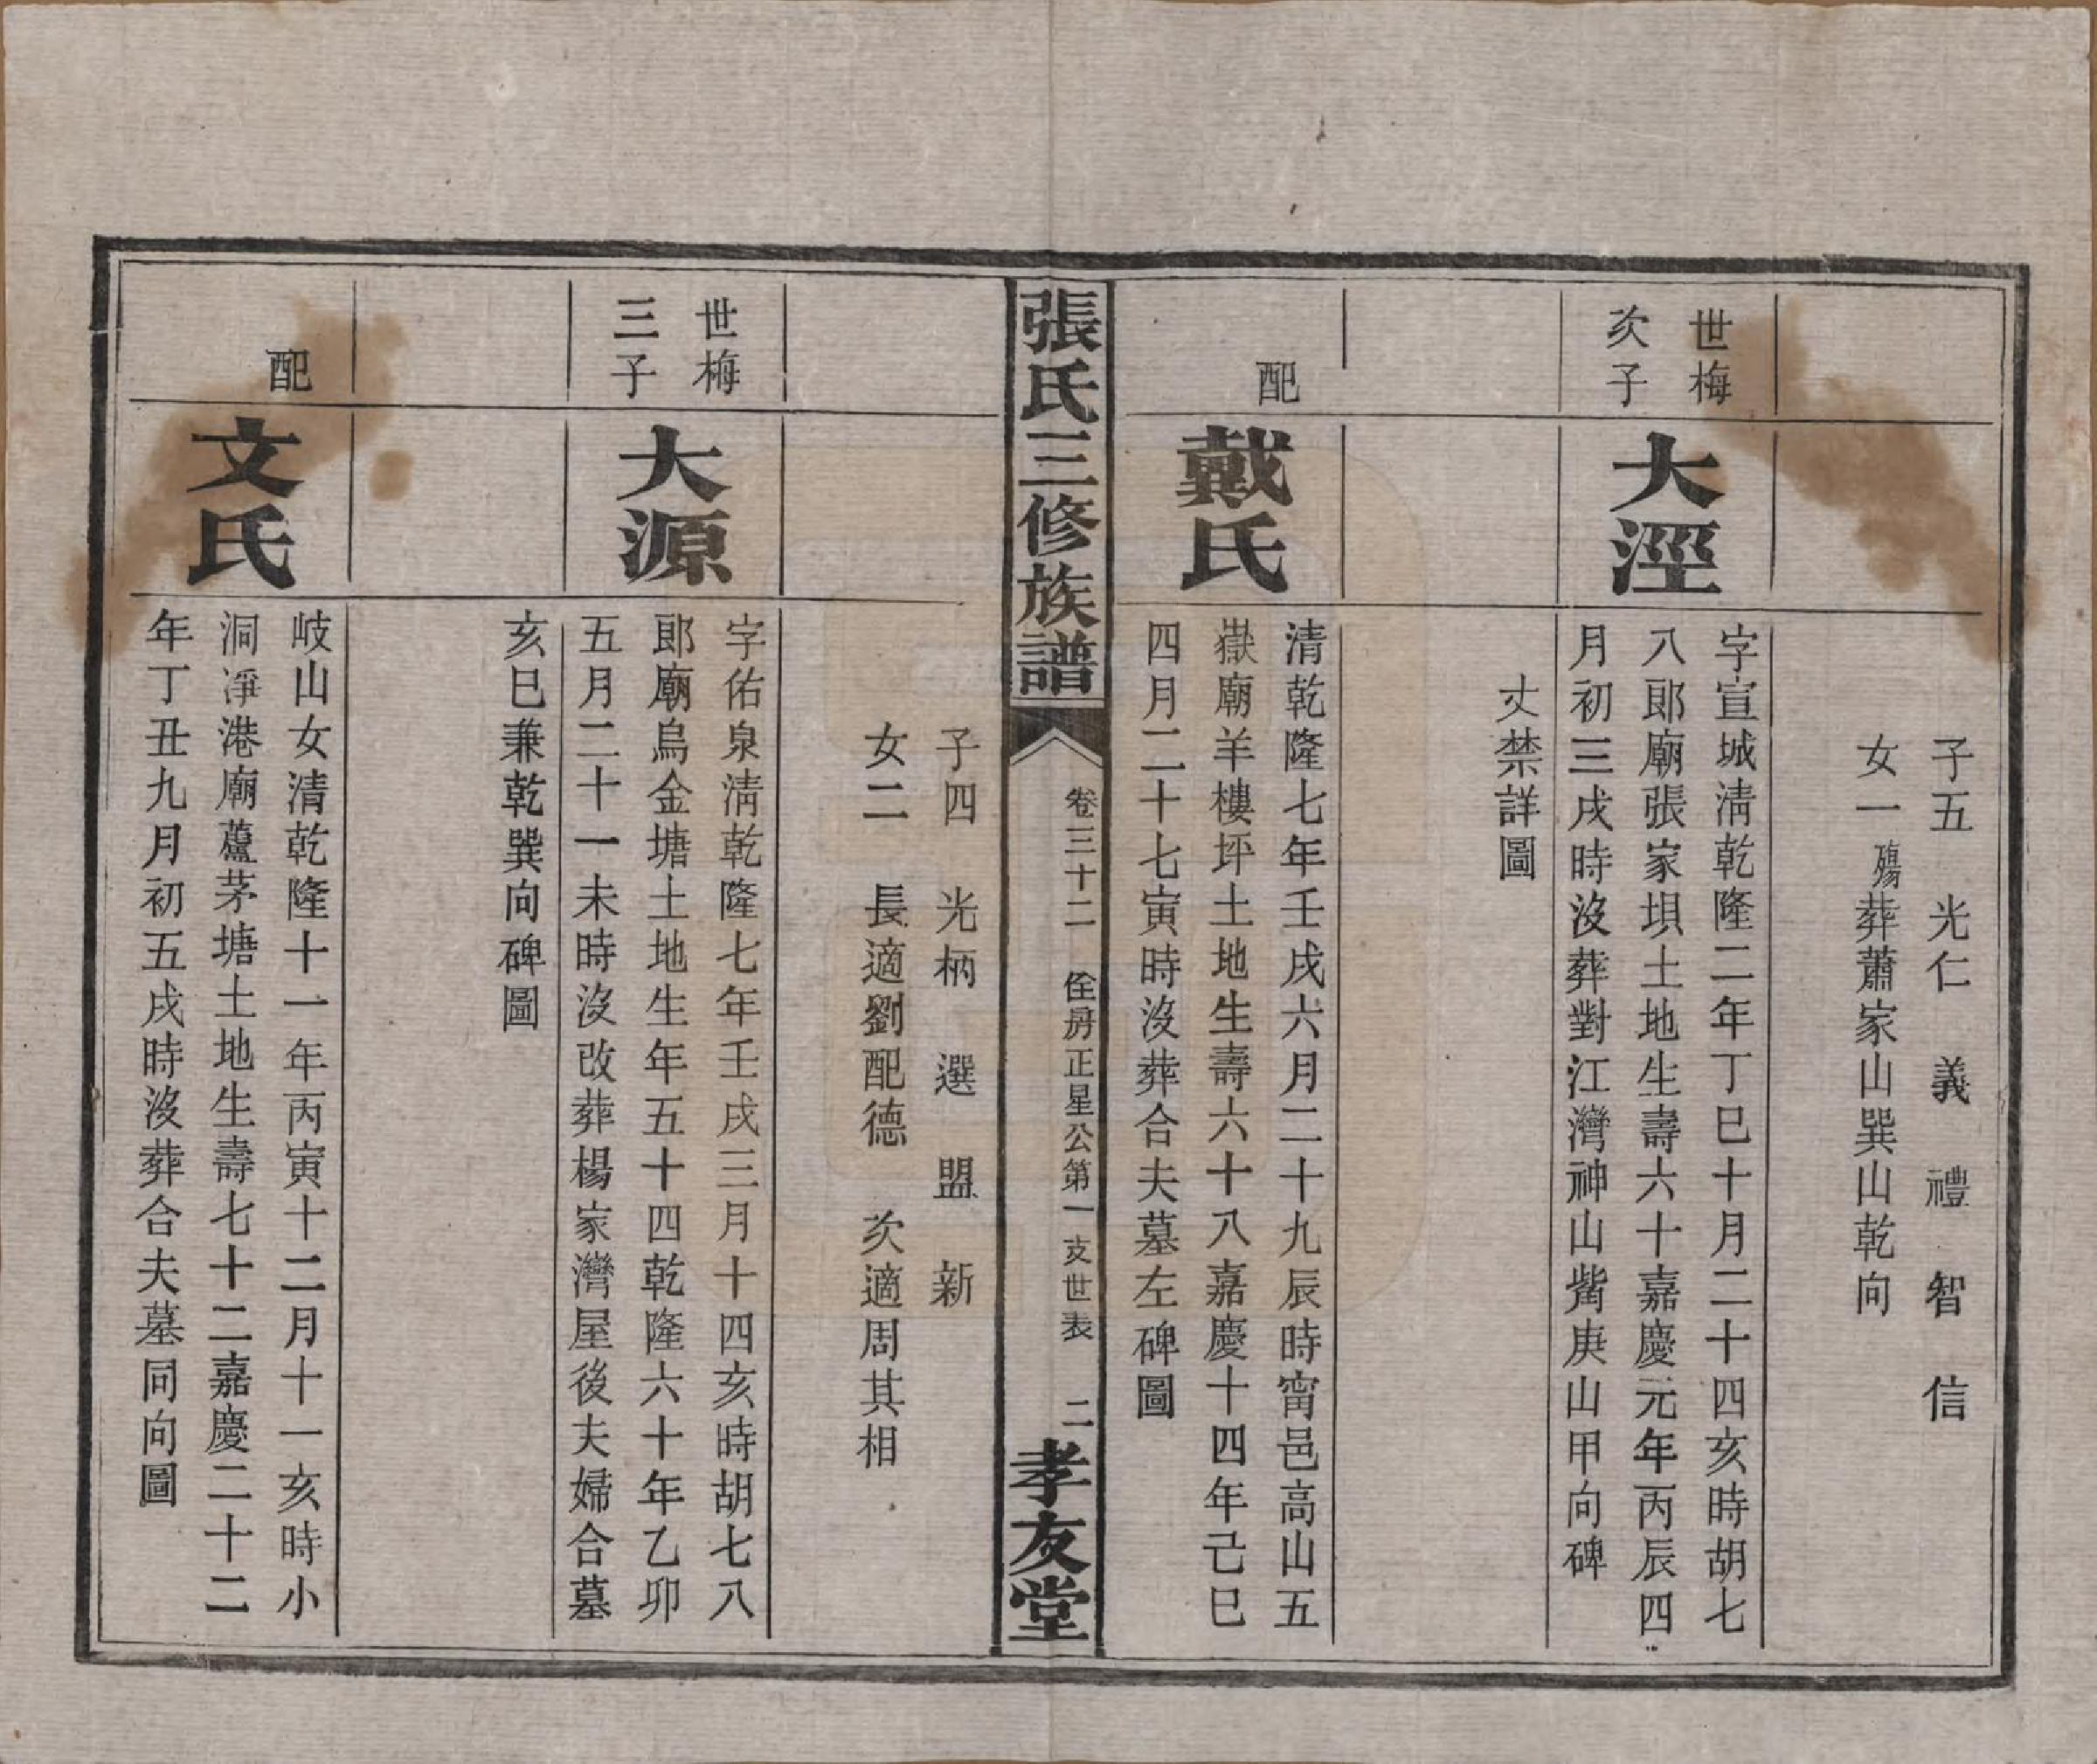 子五　光仁　義　禮　智　信
女一殤葬蕭家山巽山乾向
世梅
次子
大淫
字宣城清乾隆二年丁巳十月二十四亥時胡七
八郎廟張家垻土地生壽六十嘉慶元年丙辰四
月初三戌時沒葬對江灣神山觜庚山甲向碑
丈禁詳圖
配
戴氏
清乾隆七年壬戌六月二十九辰時甯邑高山五
嶽廟羊樓坪土地生壽六十八嘉慶十四年己巳
四月二十七寅時沒葬合夫墓左碑圖
張氏三修族譜
卷三十二　佺房正星公第一支世表　二
孝友堂
子四　光柄　選　盟　新
女二　長適劉配德　次適周其相
世梅
三子
大源
字佑泉清乾隆七年壬戌三月十四亥時胡七八
郎廟烏金塘土地生年五十四乾隆六十年乙卯
五月二十一未時沒改葬楊家灣屋後夫婦合墓
亥巳兼乾巽向碑圖
配
文氏
岐山女清乾隆十一年丙寅十二月十一亥時小
洞凈港廟蘆茅塘土地生壽七十二嘉慶二十二
年丁丑九月初五戌時沒葬合夫墓同向圖